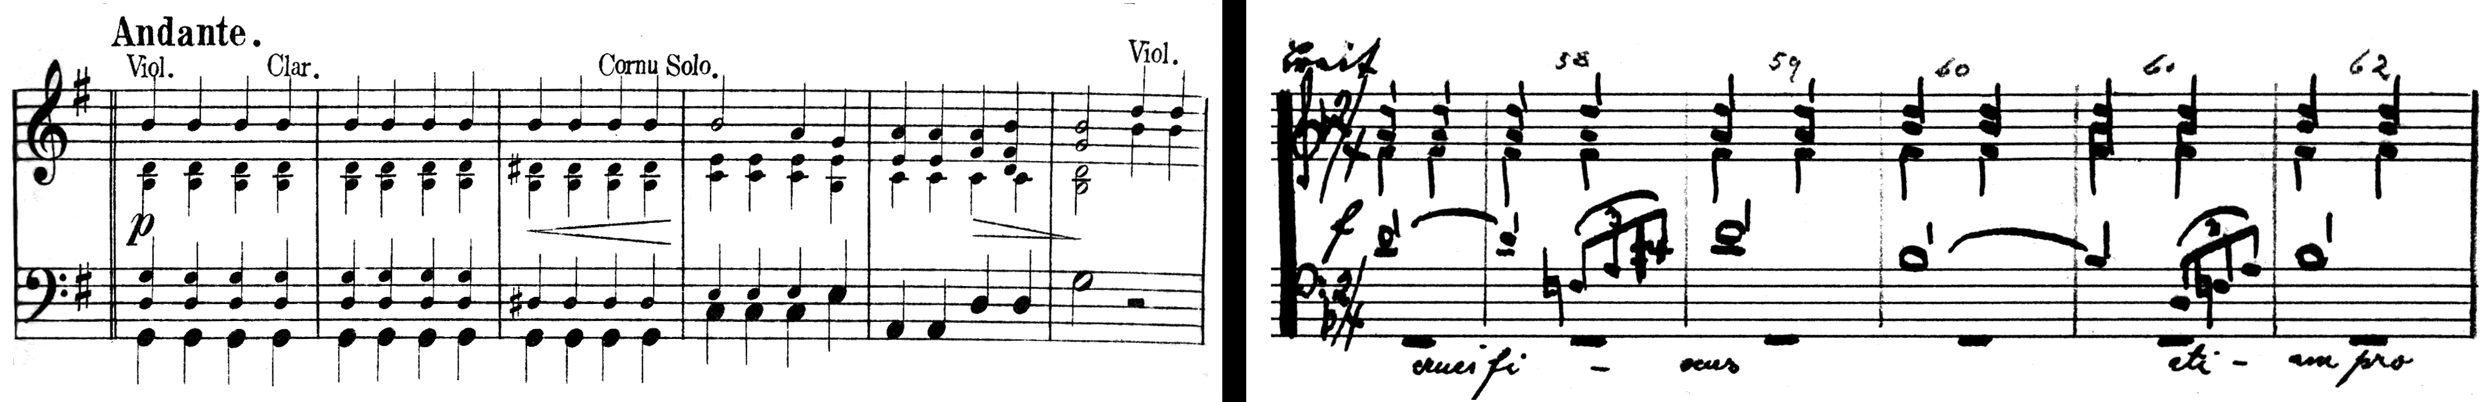 Andante.
Viol. Clar. Cornu Solo. Viol.
p
58 59 60 61 62
2/4
f
3 3
2/4
crucifi - xus eti - am pro